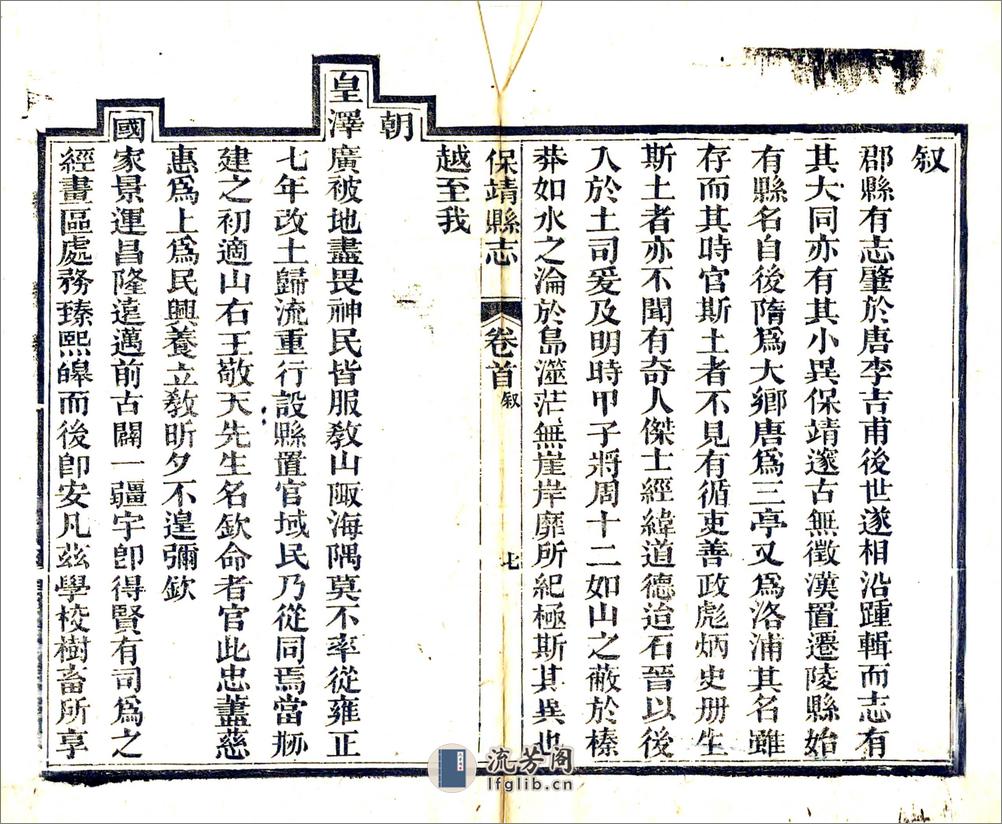 叙
郡縣有志肇於唐李吉甫後世遂相沿踵輯而志有
其大同亦有其小異保靖邃古無徵漢置遷陵縣始
有縣名自後隋爲大鄉唐爲三亭又爲洛浦其名雖
存而其時官斯土者不見有循吏善政彪炳史册生
斯土者亦不聞有奇人傑士經緯道德迨石晉以後
入於土司爰及明時甲子將周十二如山之蔽於榛
莽如水之淪於島澨茫無崖岸靡所紀極斯其異也
保靖縣志 卷首 叙
越至我
朝
皇澤廣被地盡畏神民皆服教山陬海隅莫不率從雍正
七年改土歸流重行設縣置官域民乃從同焉當剏
建之初適山右王敬天先生名欽命者官此忠藎慈
惠爲上爲民興養立教昕夕不遑彌欽
國家景運昌隆遠邁前古闢一疆宇卽得賢有司爲之
經畫區處務臻熙皞而後卽安凡茲學校樹畜所享
流芳阁
lfglib.cn